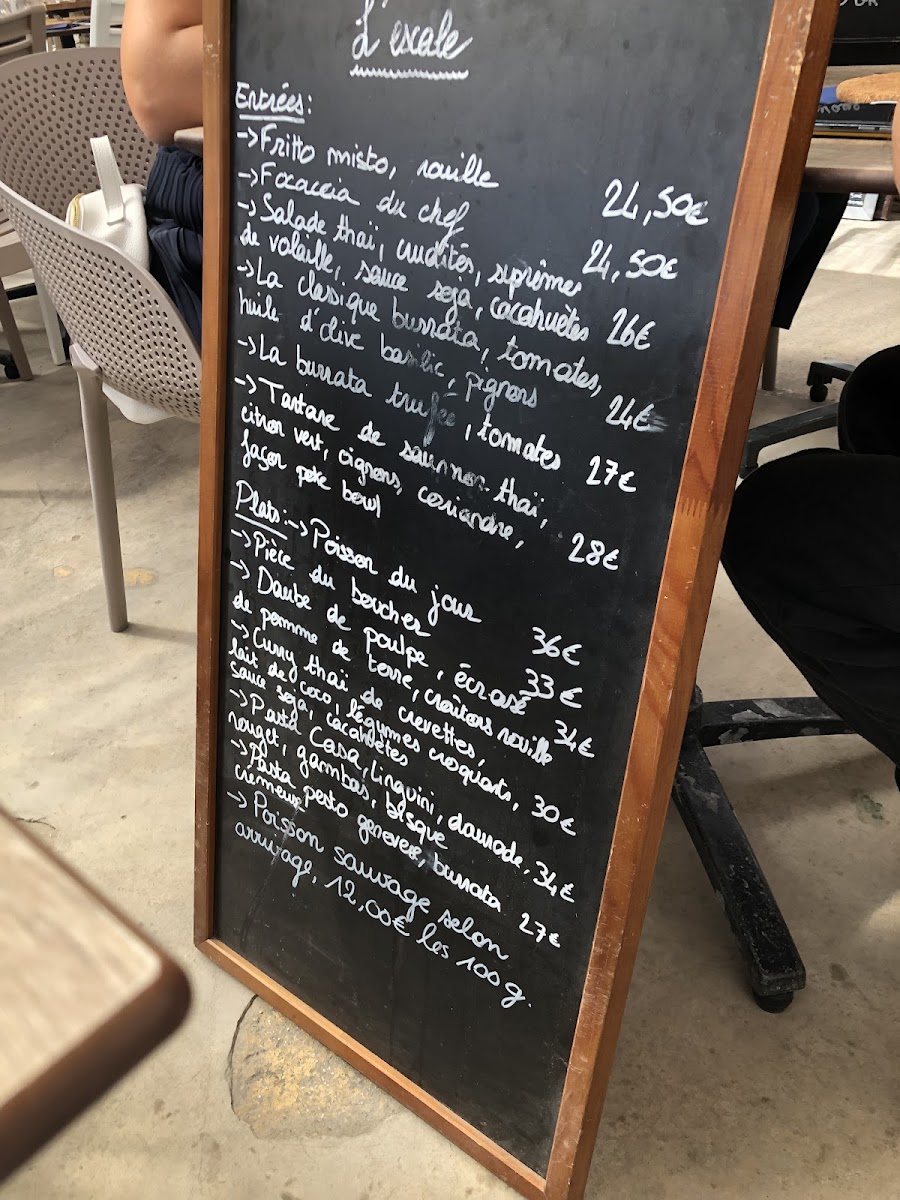 L'escale
Entrées:
->Fritto misto, rouille 24,50€
->Focaccia du chef 24,50€
->Salade thaï, crudités, suprêmes
de volaille, sauce soja, cacahuètes 26€
->La classique burrata, tomates,
huile d'olive basilic, pignons 24€
->La burrata truffée, tomates 27€
->Tartare de saumon thaï,
citron vert, oignons, coriandre,
façon poke bowl 28€
Plats:->Poisson du jour 36€
->Pièce du boucher 33€
->Daube de poulpe, écrasé
de pomme de terre, croûtons rouille 34€
->Curry thaï de crevettes,
lait de coco, légumes croquants,
sauce soja, cacahuètes 30€
->Pasta Casa, linguini, daurade,
rouget, gambas, bisque 34€
->Pasta pesto genovese, burrata
crémeuse 27€
->Poisson sauvage selon
arrivage, 12,00€ les 100g.